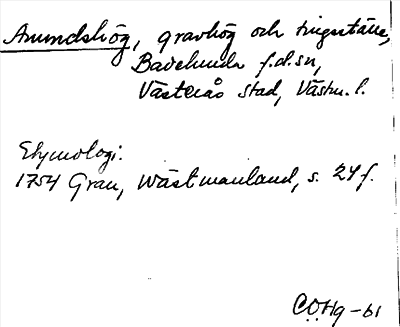 Anundshög, gravhög och tingsställe,
Badelunda f.d. sn,
Västerås stad, Västm. l.
Etymologi.
1754 Grau, Wästmanland, s. 24 f.
C.O.Hg -61